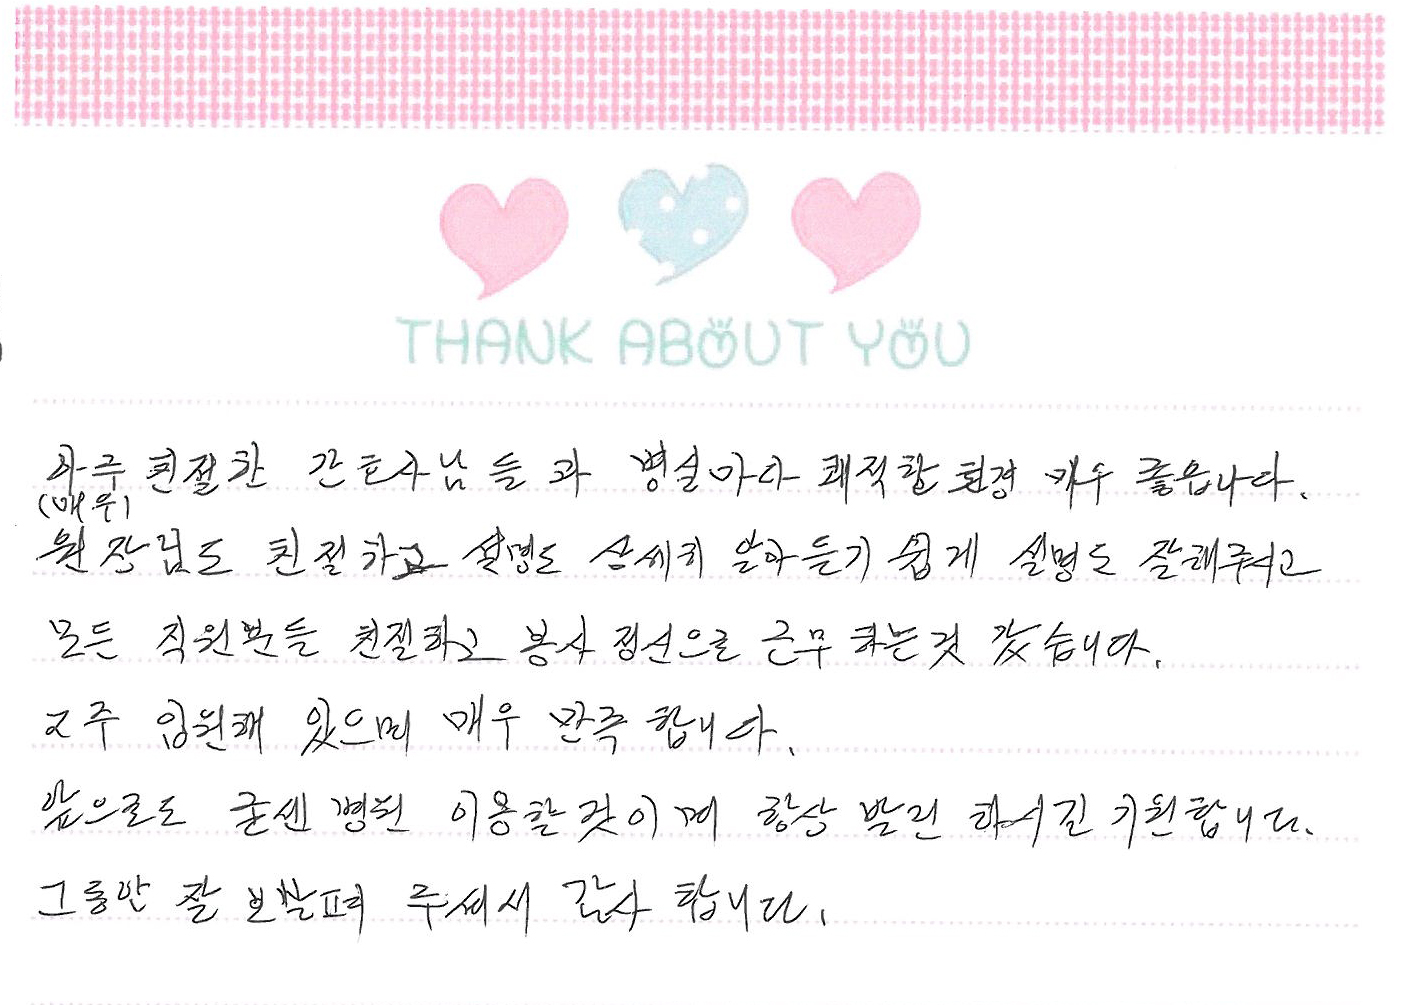 THANK ABOUT YOU
아주 친절한 간호사님들과 병실마다 쾌적한 환경 매우 좋읍니다.
(매우)
원장님도 친절하고 설명도 상세히 알아듣기 쉽게 설명도 잘해주시고
모든 직원분들 친절하고 봉사 정신으로 근무 하는것 같습니다.
2주 입원해 있으며 매우 만족 합니다.
앞으로도 굳센 병원 이용할것이며 항상 발전 하시길 기원합니다.
그동안 잘 보살펴 주셔서 감사 합니다.